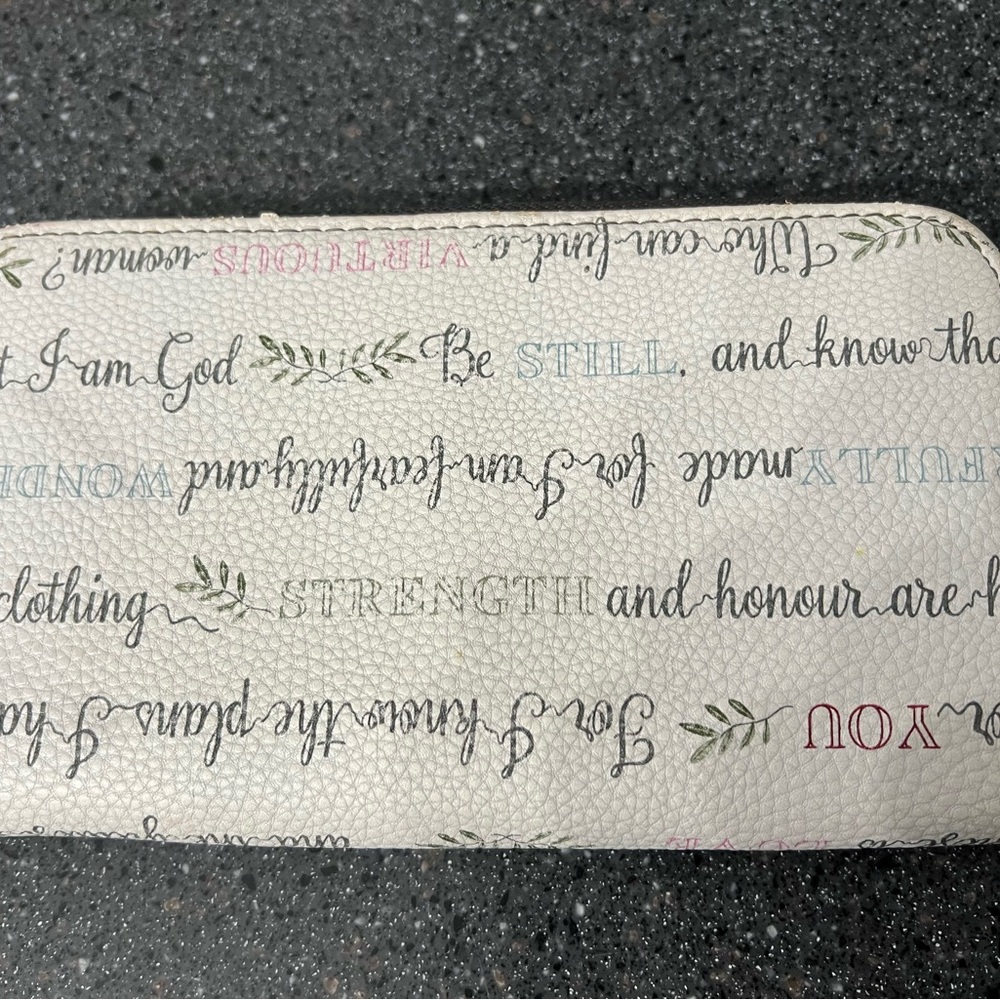 Who can find a VIRTUOUS woman?
t I am God Be STILL, and know tha
FULLY made for I am fearfully and WOND
clothing STRENGTH and honour are h
or YOU For I know the plans I ha